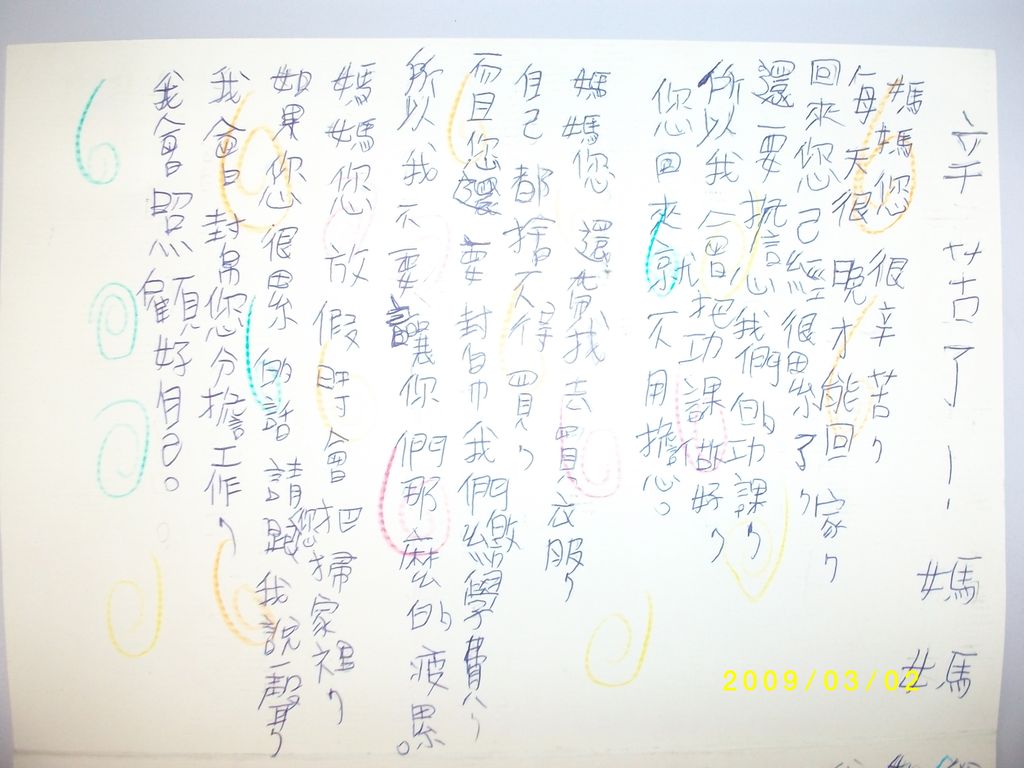 辛苦了！媽媽
媽媽您很辛苦，
每天很晚才能回家，
回來您已經很累了，
還要擔心我們的功課，
所以我會把功課做好，
您回來就不用擔心。
媽媽您還帶我去買衣服，
自己都捨不得買，
而且您還要幫我們繳學費，
所以我不要讓你們那麼的疲累。
媽媽您放假時會把掃家裡，
如果您很累的話請跟我說一聲，
我會幫您分擔工作，
我會照顧好自己。
2009/03/02